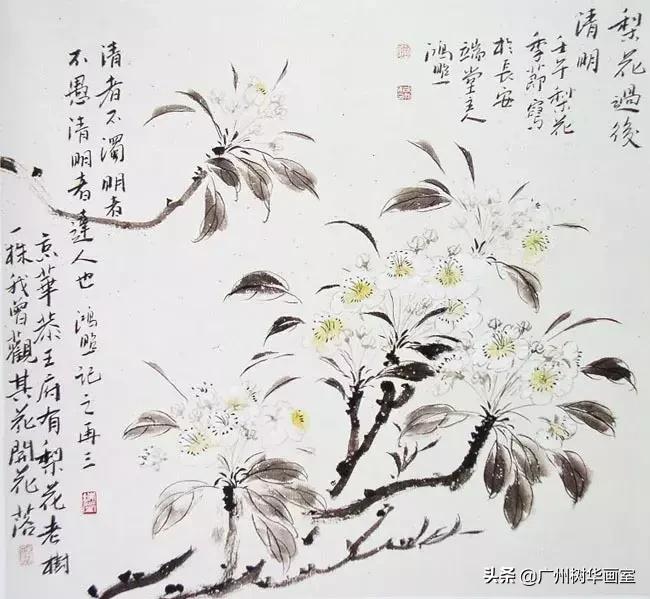 梨花過後
清明
壬午梨花
季節寫
於長安
端堂主人
鴻照
清者不濁明者
不愚清明者達人也 鴻照記之再三
京華恭王府有梨花老樹
一株我曾觀其花開花落
头条 @广州树华画室